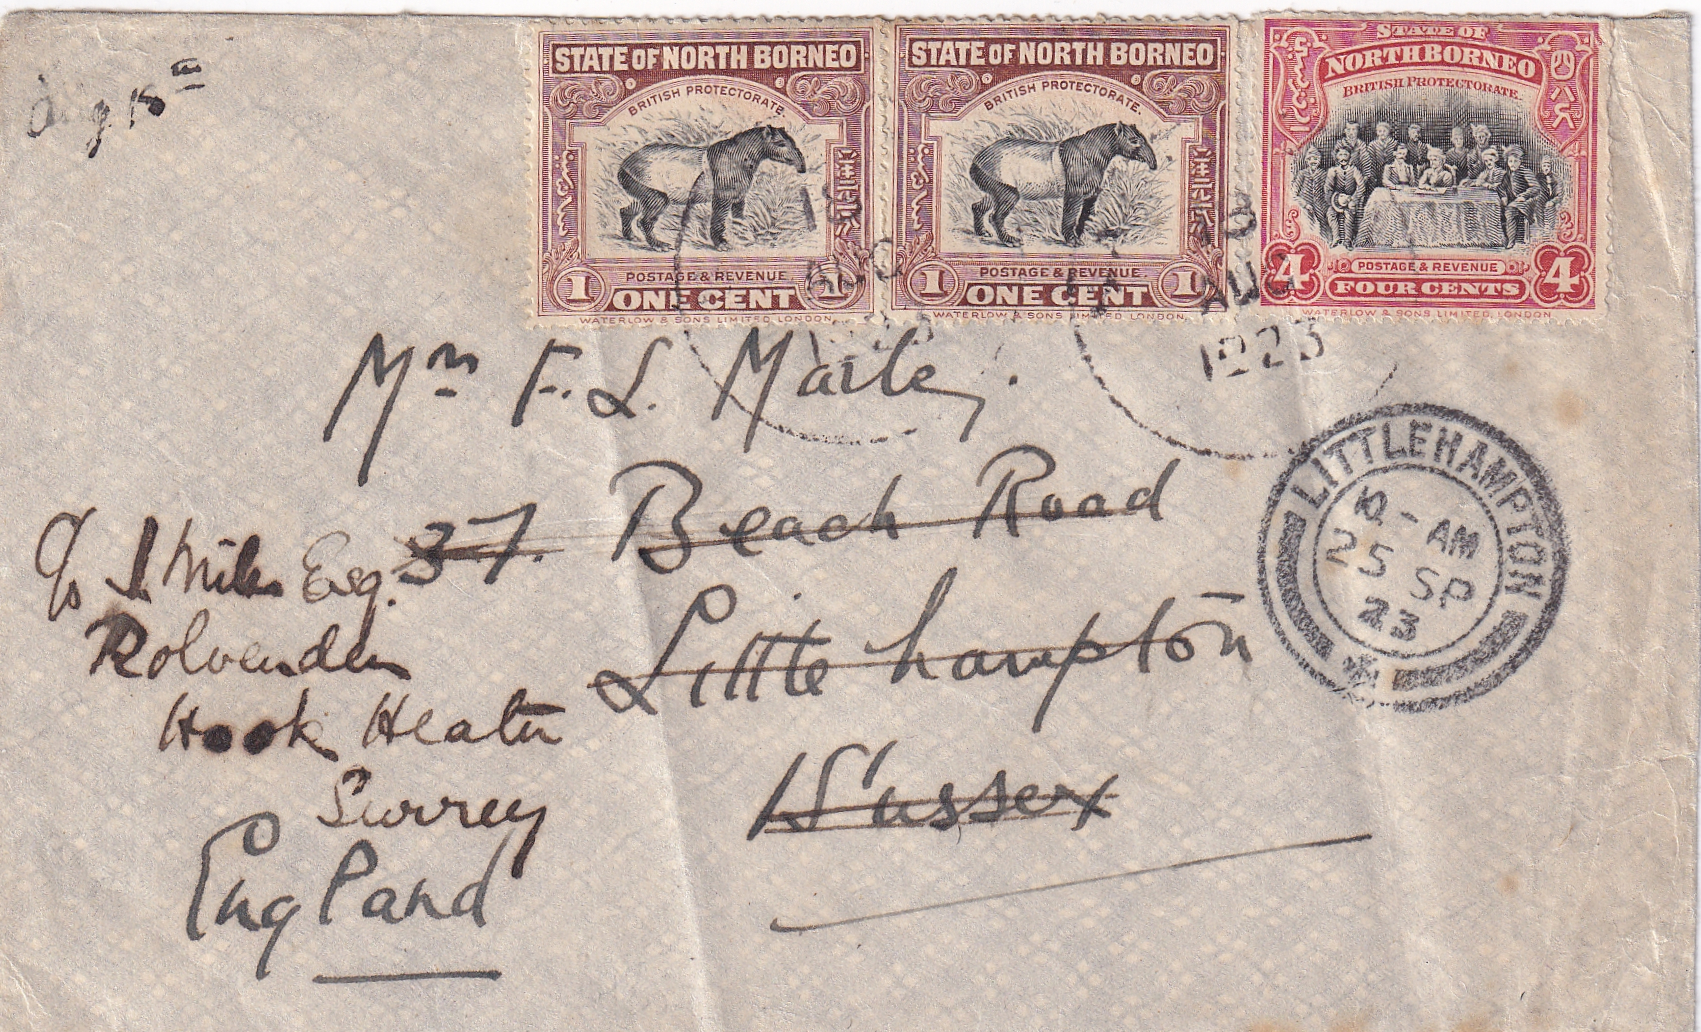 Aug 18th
STATE OF NORTH BORNEO
BRITISH PROTECTORATE.
POSTAGE & REVENUE
1 ONE CENT 1
WATERLOW & SONS LIMITED, LONDON.
STATE OF NORTH BORNEO
BRITISH PROTECTORATE.
POSTAGE & REVENUE
1 ONE CENT 1
WATERLOW & SONS LIMITED, LONDON.
STATE OF
NORTH BORNEO
BRITISH PROTECTORATE.
4 POSTAGE & REVENUE 4
FOUR CENTS
WATERLOW & SONS LIMITED, LONDON.
AUG
AUG
1923
Mrs F. L.
37. Beach Road
Little hampton
Sussex
C/o J. Miles Esq.
Rolvenden
Hook Heath
Surrey
England
LITTLEHAMPTON
10 - AM
25 SP
23